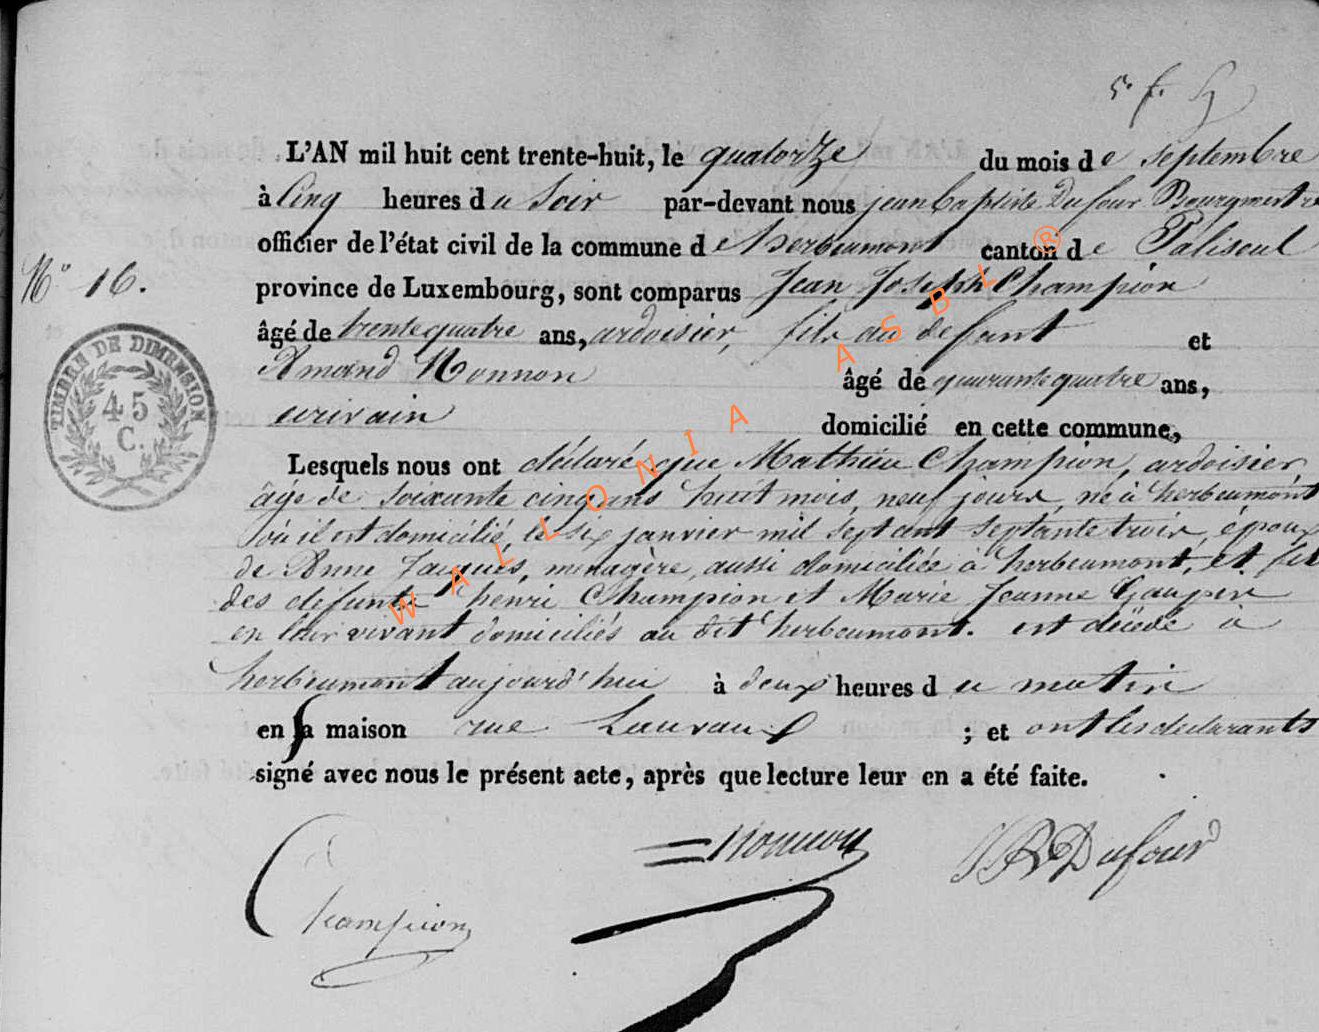 5. f. 5
L'AN mil huit cent trente-huit, le quatorze du mois de septembre
à cinq heures du soir par-devant nous jean baptiste Dufour Bourgmestre
officier de l'état civil de la commune de herbeumont canton de Paliseul
N.º 16.
province de Luxembourg, sont comparus Jean Joseph Champion
âgé de trente quatre ans, ardoisier, fils du defunt et
Amand Monnon âgé de quarante quatre ans,
ecrivain domicilié en cette commune,
Lesquels nous ont déclaré que Mathieu Champion, ardoisier
âgé de soixante cinq ans huit mois, neuf jours, né à herbeumont
où il est domicilié, le six janvier mil sept cent septante trois, époux
de Anne Jaques, menagère, aussi domiciliée à herbeumont, et fils
des defunts henri Champion et Marie Jeanne
en leur vivant domiciliés au dit herbeumont. est décédé à
herbeumont aujourd'hui à deux heures du matin
en sa maison rue ; et ont les declarants
signé avec nous le présent acte, après que lecture leur en a été faite.
TIMBRE DE DIMENSION
45
C.
Champion
Monnon
JB Dufour
WALLONIA ASBL ®